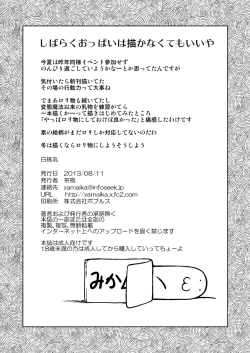 しばらくおっぱいは描かなくてもいいや
今夏は昨年同様イベント参加せず
のんびり過ごしていようかなーとか思ってたんですが
気付いたら新刊描いてた
その場の行動力って大事ね
でまあロリ物も続いてたし
変態魔法以来の乳物を練習がてら
一本描くかーって描きはじめてみたところ
「やっぱロリ物にしておけば良かった」と痛感したわけです
素の絵柄がまだロリしか対応してないのだわ
冬は描くならロリ物にしようそうしよう
白桃乳
発行日 2013/08/11
発行者 茶鳥
連絡先 yamaika@infoseek.jp
URL http://yamaika.x.fc2.com
印刷所 株式会社ポプルス
著者および発行者の承諾無く
本誌の一部または全部の
複製、複写、無断転載
インターネット上へのアップロードを固く禁じます
本誌は成人向けです
18歳未満の方は成人してから購入していってちょーよ
みかん